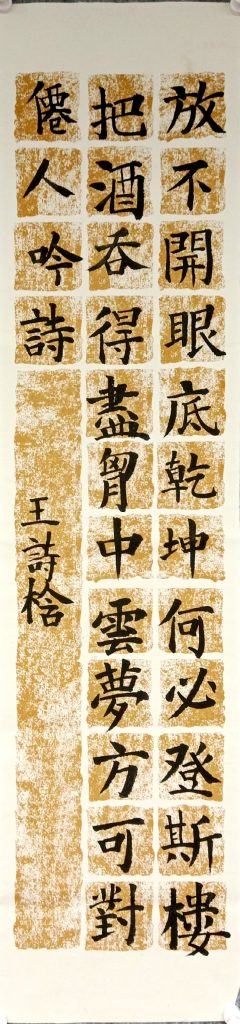 放不開眼底乾坤何必登斯樓
把酒吞得盡胷中雲夢方可對
僊人吟詩
王詩桧